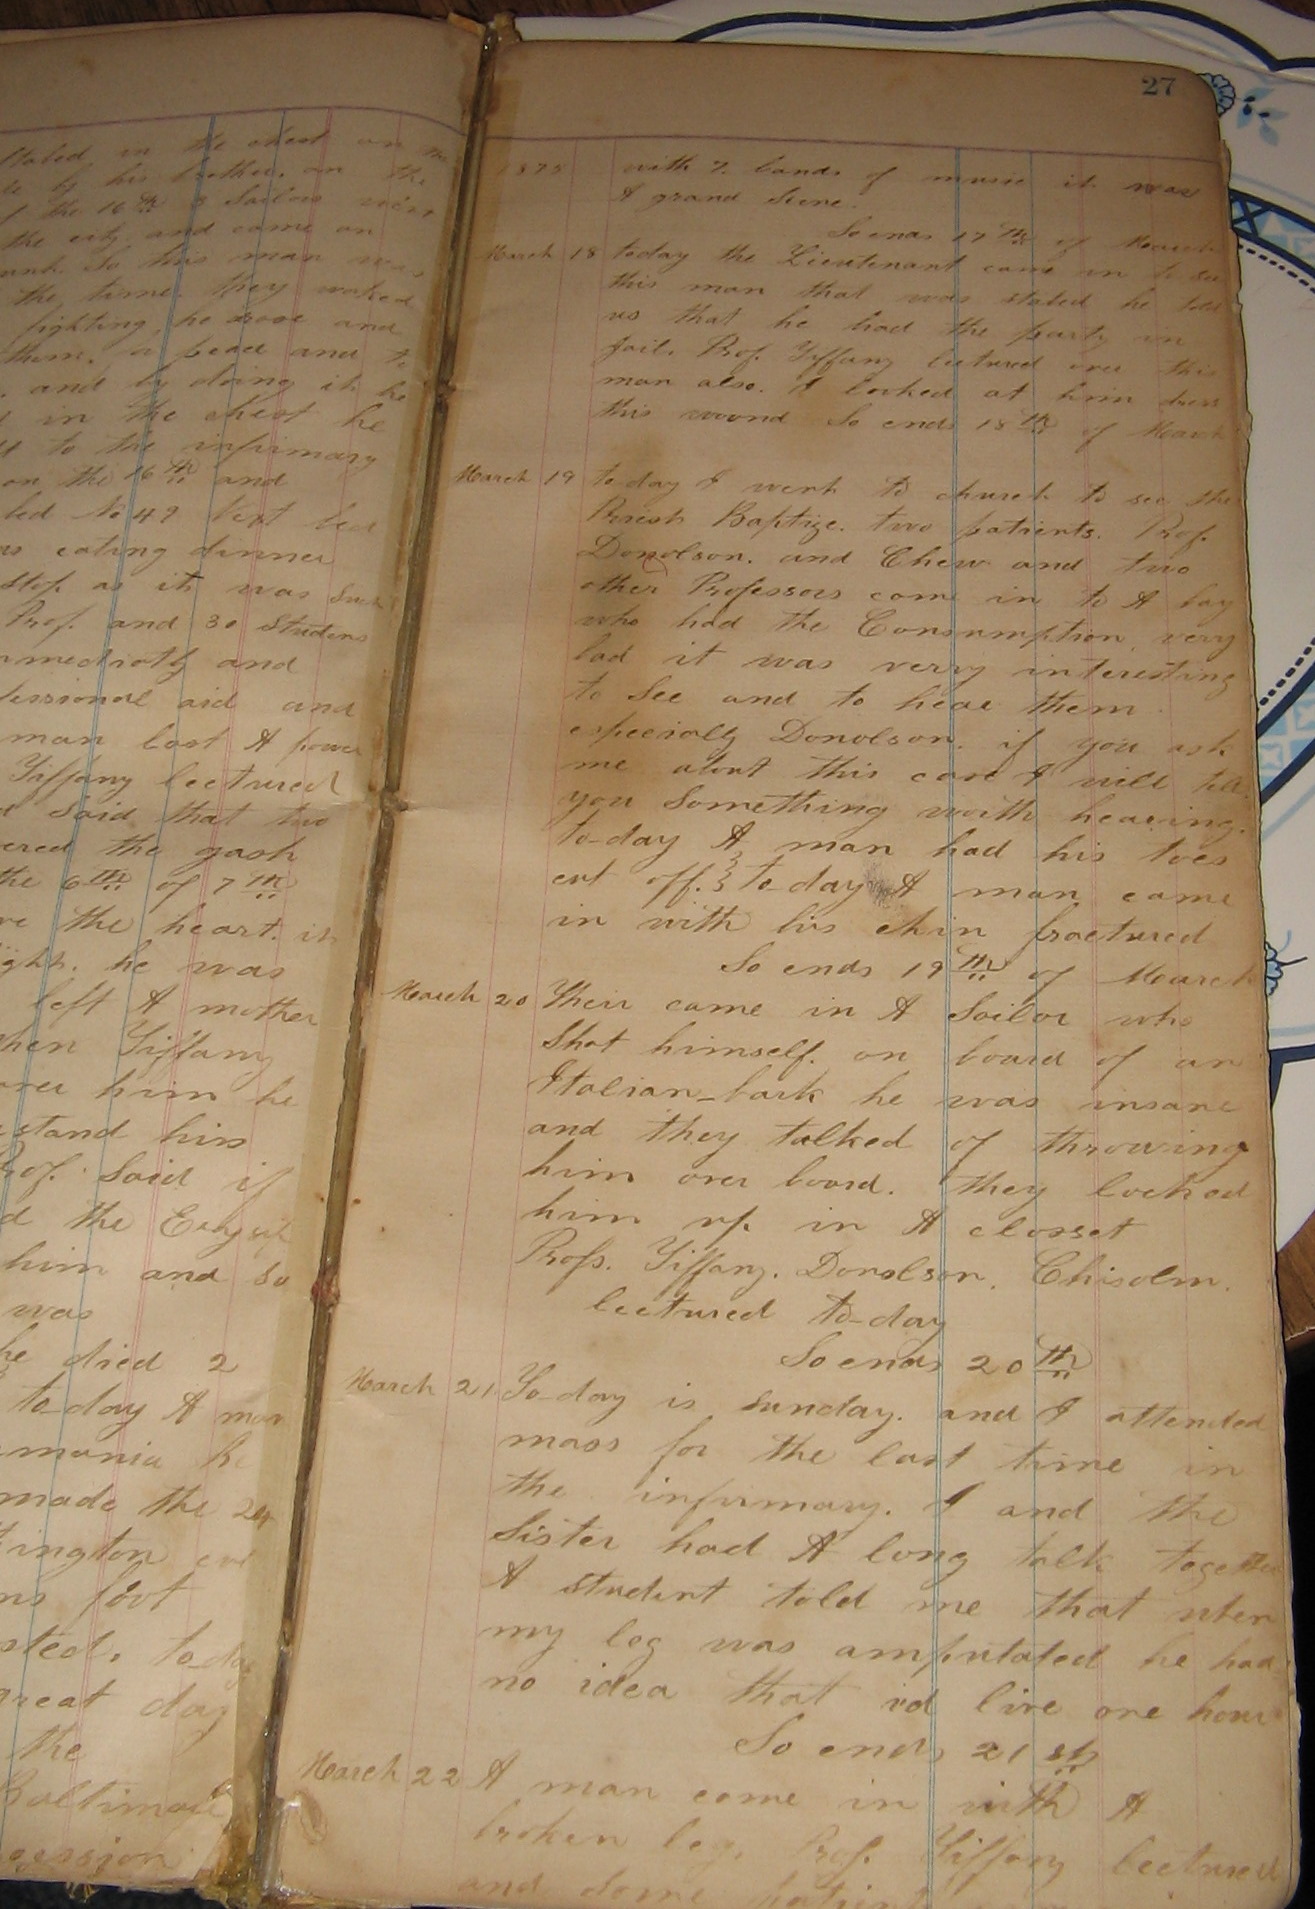 in the chest on the
by his brother. on the
of the 16th 3 Sailors were
the city and came on
So this man was
the time they
fighting, he rose and
them. and to
and by doing it he
in the chest he
to the infirmary
on the 16th and
bed No 49 next bed
eating dinner
stop as it was
Prof. and 30 Students
and
aid and
man lost A power
Tiffany lectured
said that two
the gash
the 6th of 7th
the heart. it
he was
left A mother
Tiffany
over him he
stand him
Prof. Said if
the
him and So
was
he died 2
to-day A man
mania he
made the

foot
to-day
great day
the
Baltimore
27
1875 with 7. bands of music it was
A grand Scene.
So ends 17th of March
March 18 today the Lieutenant came in to see
this man that was stabed he told
us that he had the party in
jail. Prof. Tiffany lectured over this
man also. I looked at him dress
this wound So ends 18th of March
March 19 to day I went to church to see the
Priest Baptize. two patients. Prof.
Donolson. and Chew and two
other Professors come in to A boy
who had the Consumption very
bad it was verry interesting
to See and to hear them
especially Donolson. if you ask
me about this case I will tell
you Something worth hearing.
to-day A man had his toes
cut off. to-day A man came
in with his chin fractured
So ends 19th of March
March 20 Their came in A Sailor who
Shot himself. on board of an
Italian-bark he was insane
and they talked of throwing
him over board. they locked
him up in A closset
Profs. Tiffany. Donolson. Chisolm.
lectured to-day
So ends 20th
March 21 To-day is Sunday. and I attended
mass for the last time in
the infirmary. I and the
Sister had A long talk together
A student told me that when
my leg was amputated he had
no idea that id live one hour
So ends 21st
March 22 A man come in with A
broken leg. Prof. Tiffany lectured
and some